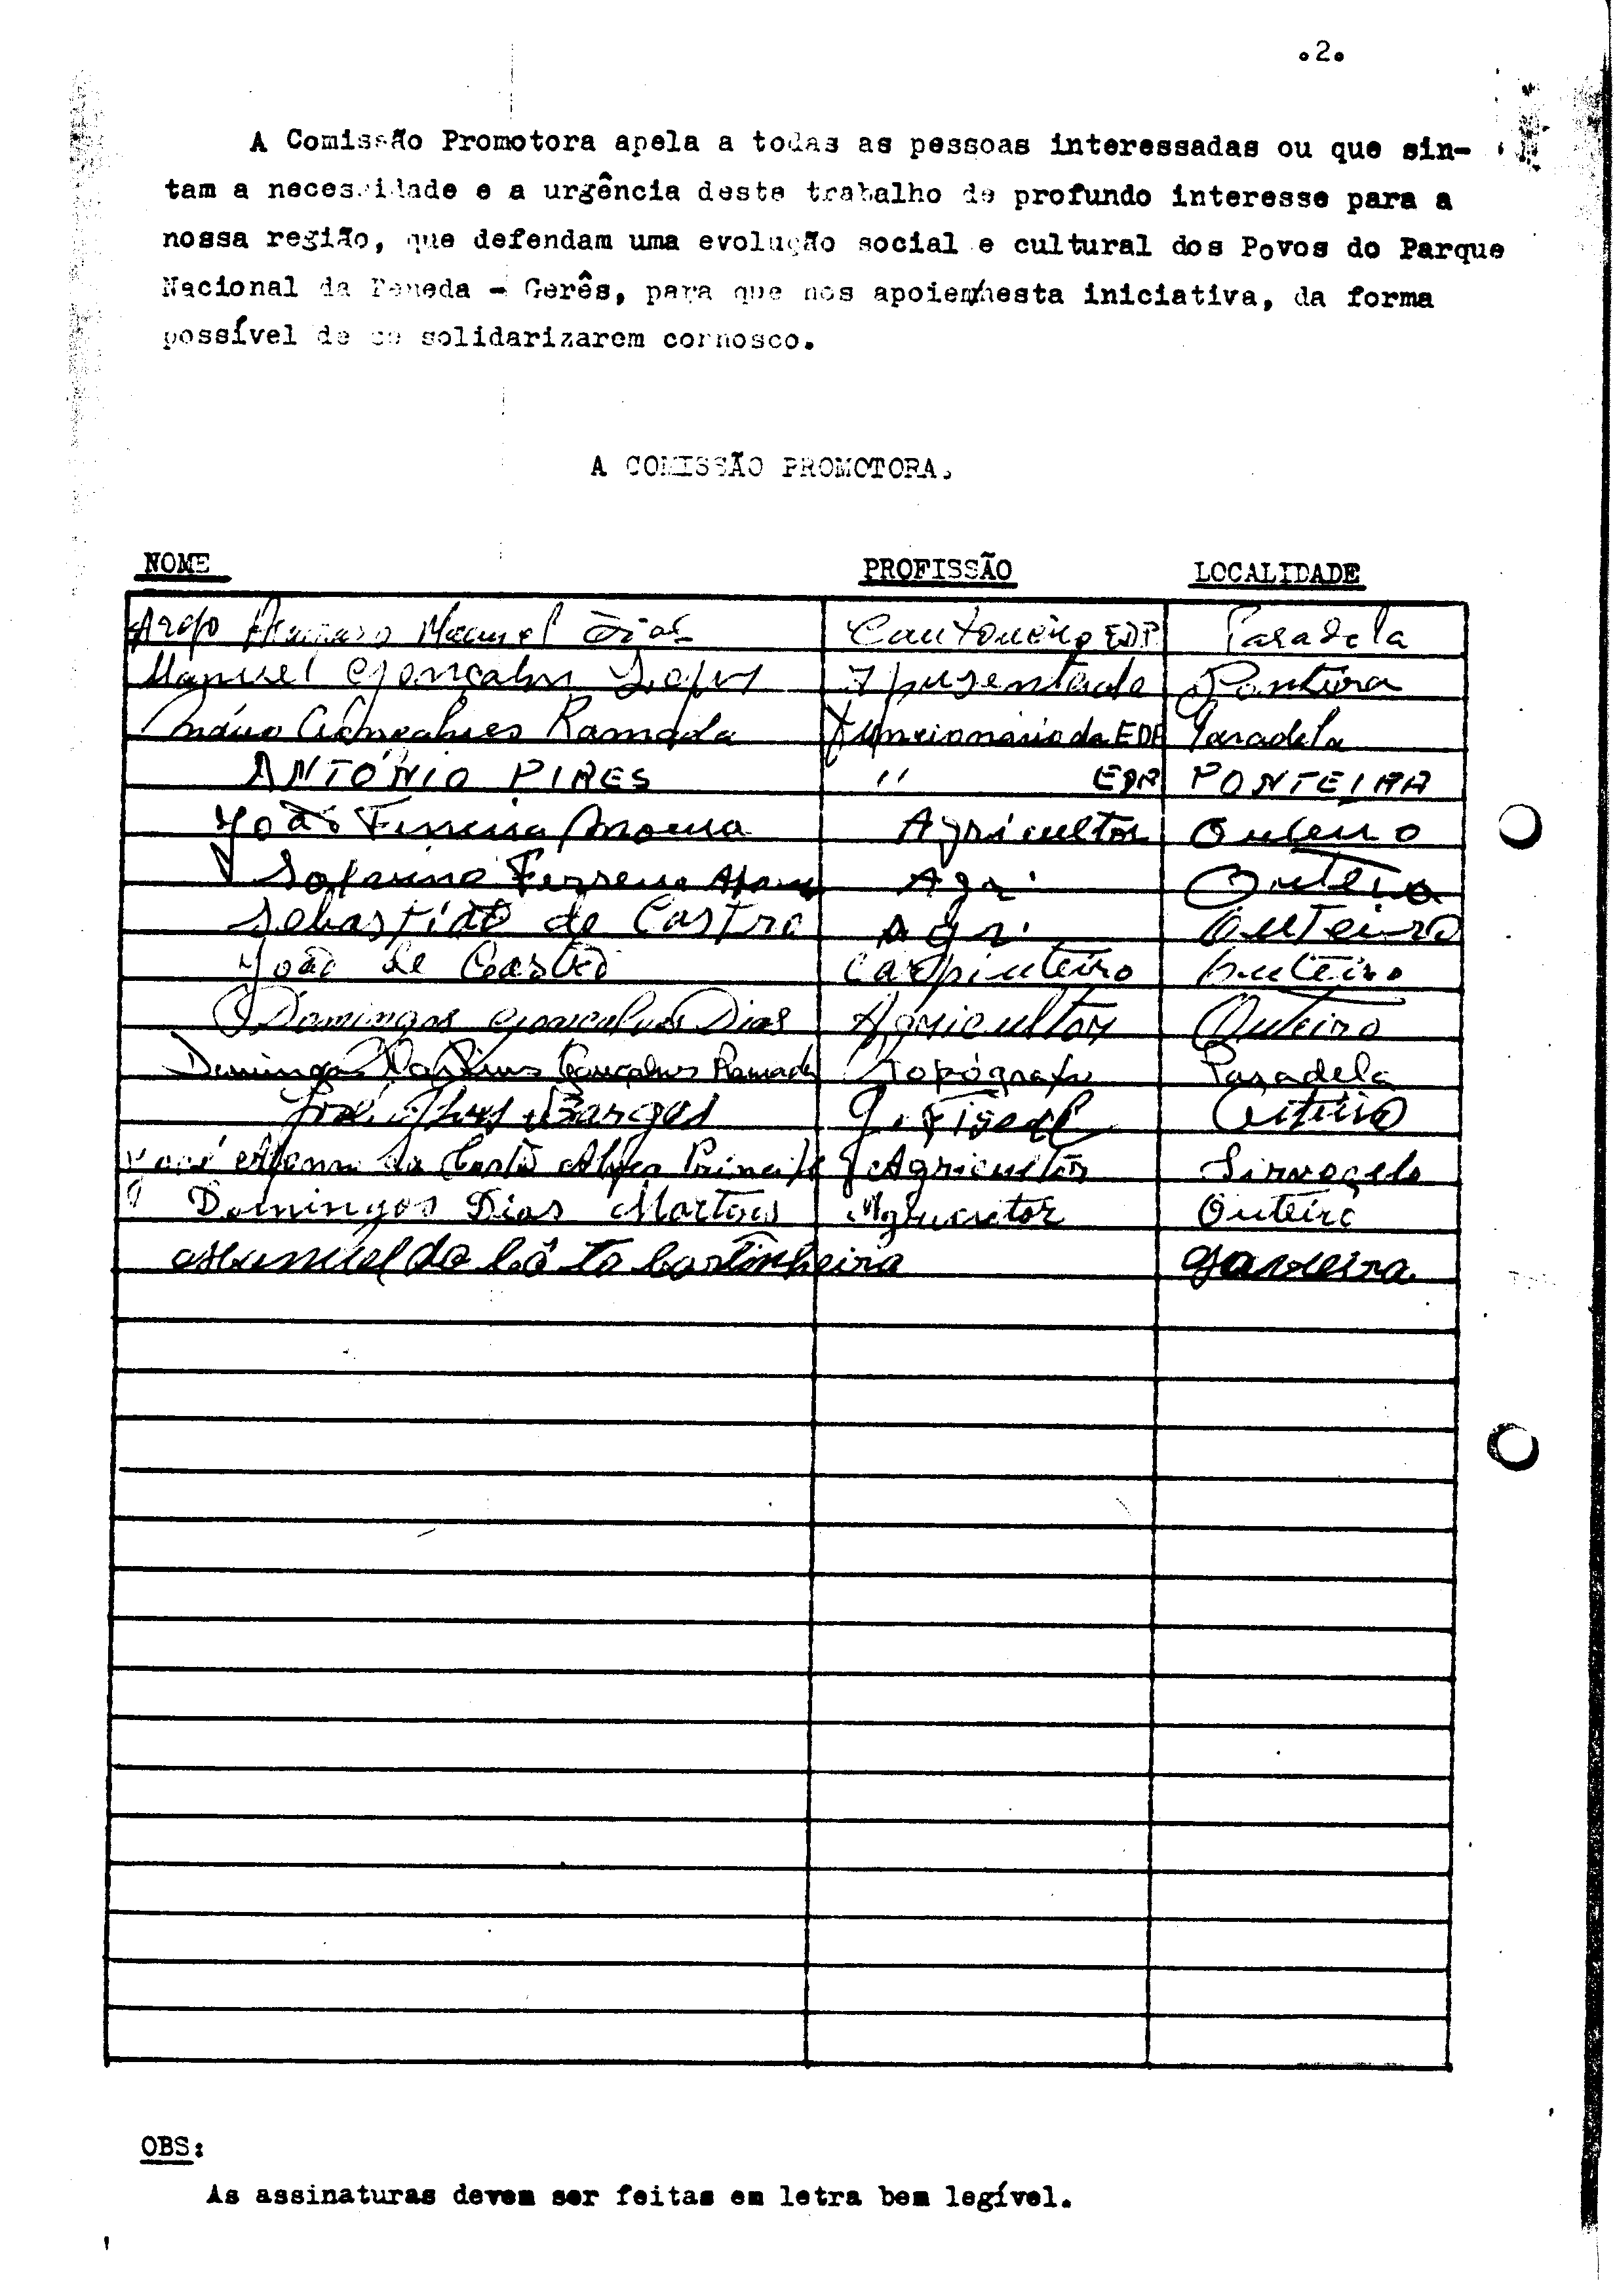 .2.
A Comissão Promotora apela a todas as pessoas interessadas ou que sin-
tam a necessidade e a urgência deste trabalho de profundo interesse para a
nossa região, que defendam uma evolução social e cultural dos Povos do Parque
Nacional da Peneda - Gerês, para que nos apoiem/nesta iniciativa, da forma
possível de se solidarizarem connosco.
A COMISSÃO PROMOTORA.
NOME PROFISSÃO LOCALIDADE
Manuel Dias Cantoneiro EDP Paradela
Manuel Gonçalves Lopes Apusentado
Mário Gonçalves Ramada Funcionário da EDP Paradela
ANTÓNIO PIRES " EDP PONTEIRA
João Ferreira Moura Agricultor Outeiro
Ferreira Agr. Outeiro
Sebastião de Castro Agr. Outeiro
João de Castro Carpinteiro Outeiro
Domingos Gonçalves Dias Agricultor Outeiro
Domingos Martins Gonçalves Ramada Topógrafo Paradela
José Alves Borges Outeiro
José da Costa Alves Agricultor Sirvozelo
Domingos Dias Martins Outeiro
Manuel da
OBS:
As assinaturas devem ser feitas em letra bem legível.